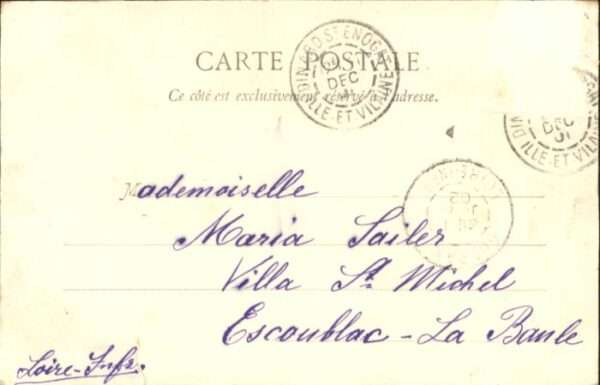 CARTE POSTALE
Ce côté est exclusivement réservé à l'adresse.
DINARD ST ENOGAT
DEC
ILLE-ET-VILAINE
DIN
DEC
01
ILLE-ET-VILAINE
Mademoiselle
Maria Sailer
Villa St. Michel
Escoublac - La Baule
Loire-Infre.